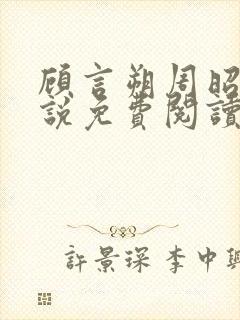 顾言朔周昭
說免費閱讀
許景琛李中興